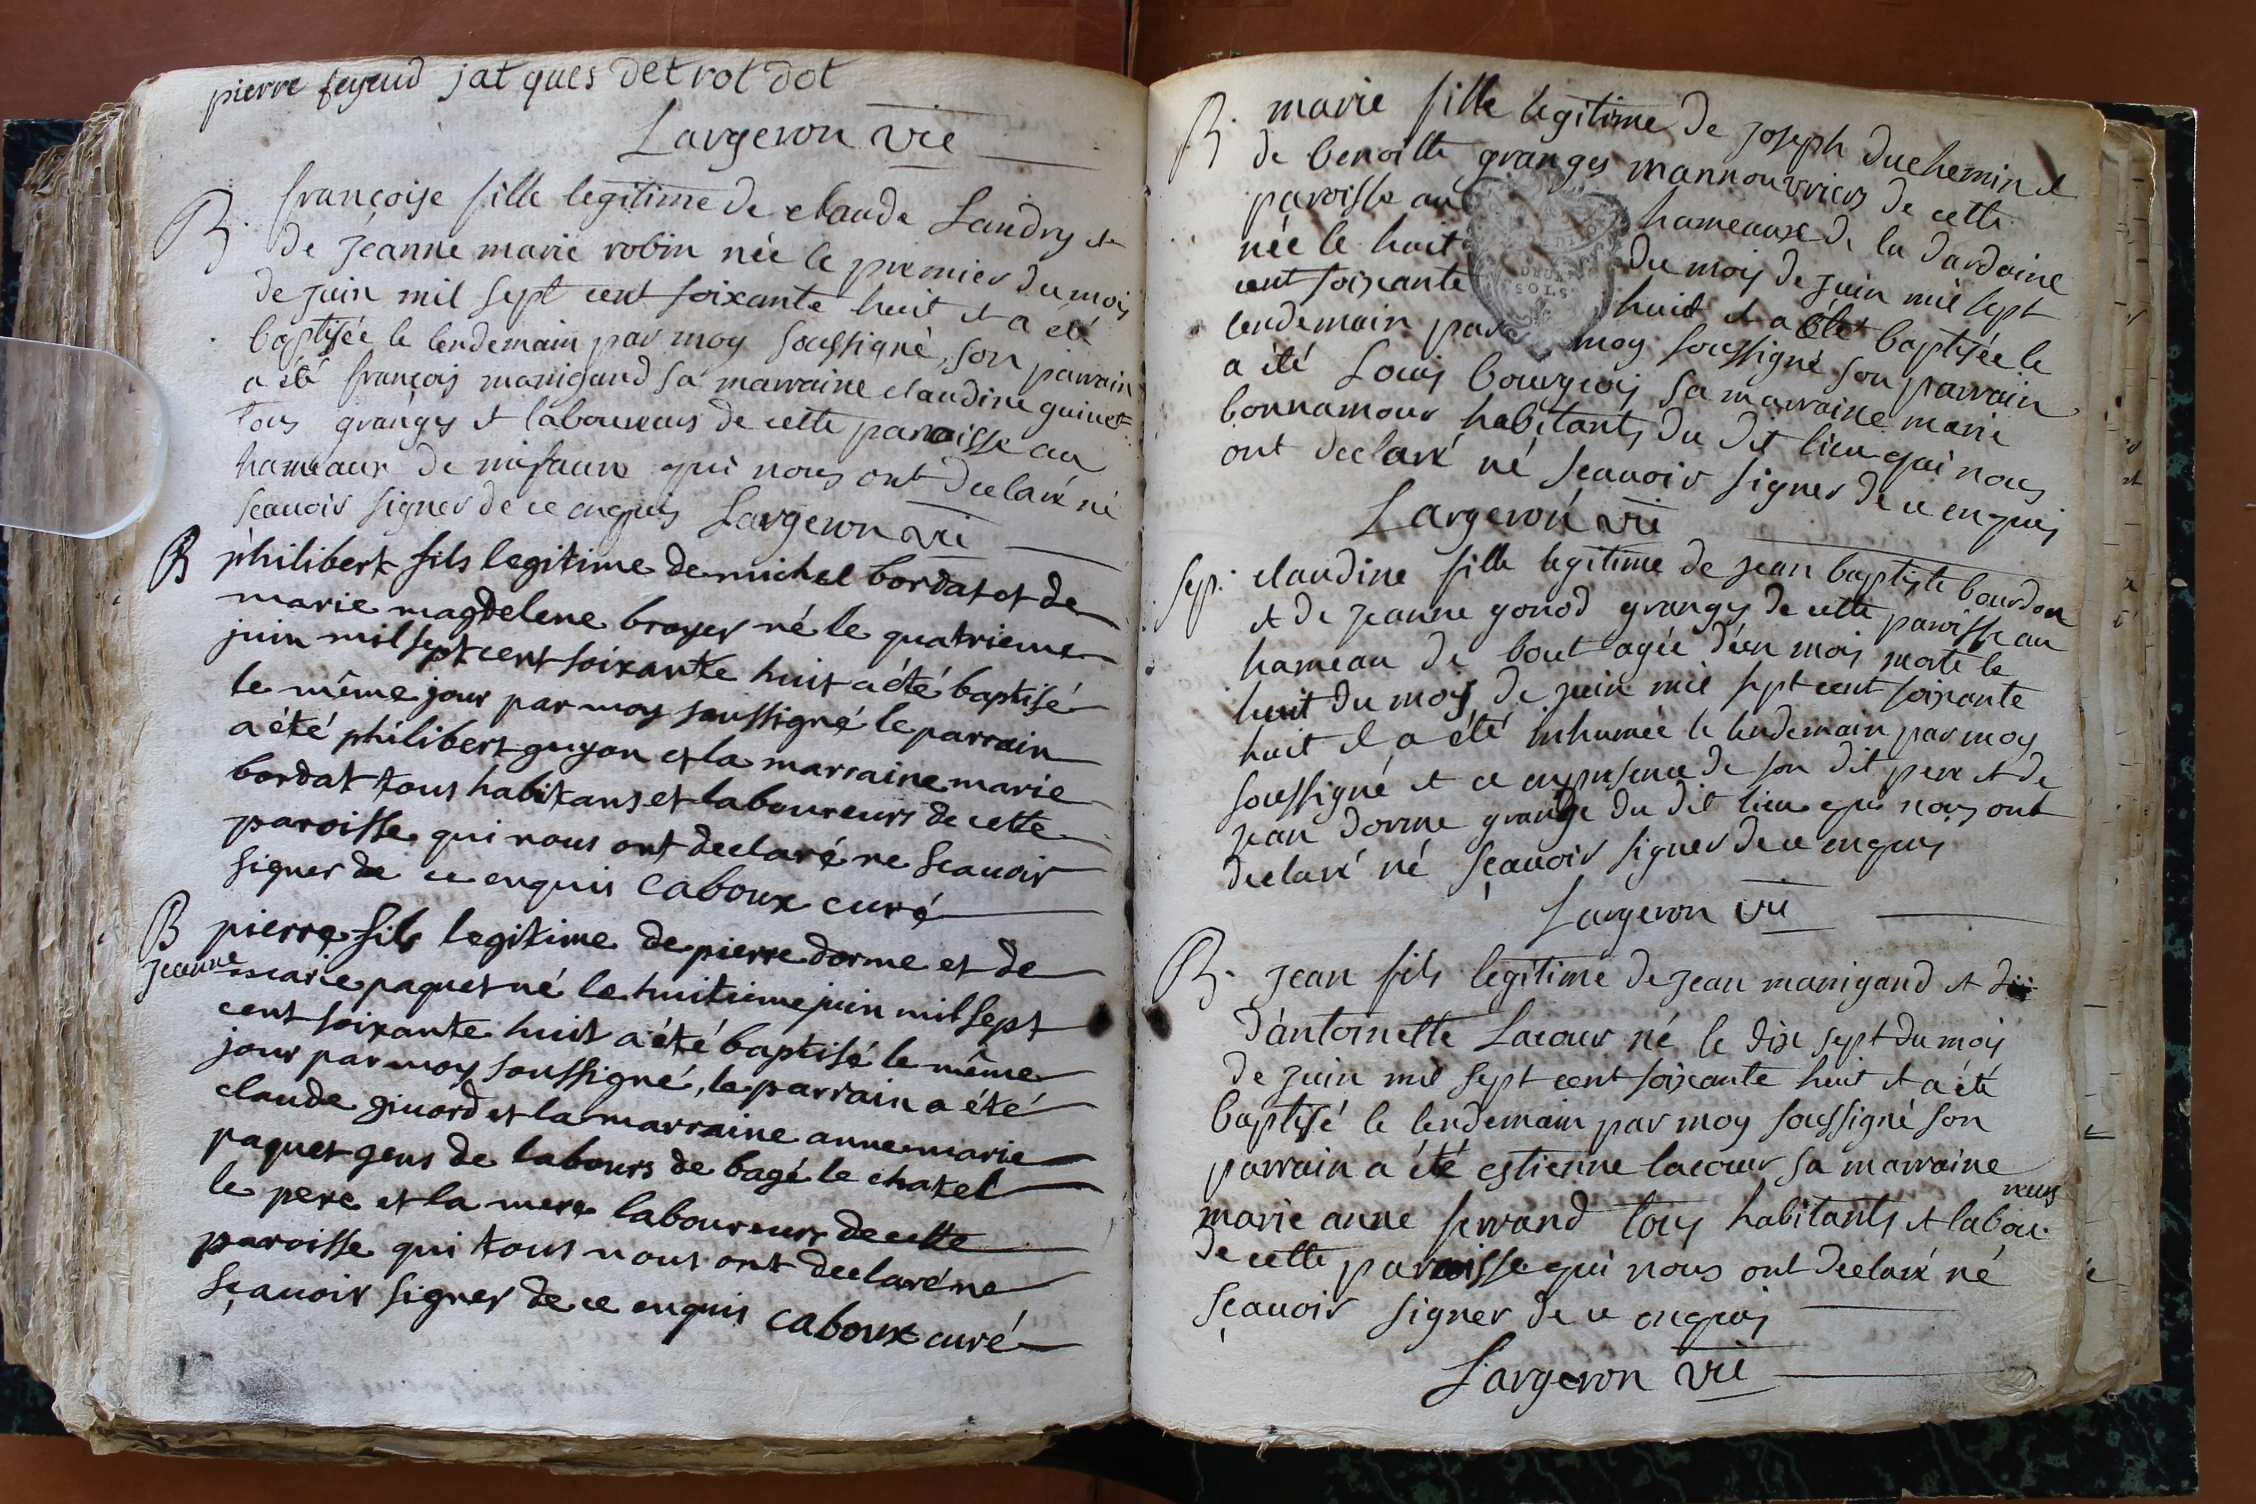 pierre feyeud jatques detrotdot
Largeron vic
B. françoise fille legitime de claude Landry et
de jeanne marie robin née le premier du mois
de juin mil sept cent soixante huit et a été
baptisée le lendemain par moy soussigné, son parrain
a été françois manigand sa marraine claudine guinet
tous grangers et laboureurs de cette paroisse au
hameaux de misaure qui nous ont declaré né
scauoir signer de ce enquis Largeron vic
B philibert fils legitime de michel bordat et de
marie magdelene broyer né le quatrieme
juin mil sept cent soixante huit a été baptisé
le même jour par moy soussigné le parrain
a été philibert guyon et la marraine marie
bordat tous habitans et laboureurs de cette
paroisse qui nous ont declaré ne scauoir
signer de ce enquis caboux curé
B pierre fils legitime de pierre dorme et de
jeanne marie paquet né le huitieme juin mil sept
cent soixante huit a été baptisé le même
jour par moy soussigné, le parrain a été
claude giuord et la marraine anne marie
paquet gens de labours de bagé le chatel
le pere et la mere laboureurs de cette
paroisse qui tous nous ont declaré ne
sçauoir signer de ce enquis caboux curé
B. marie fille legitime de joseph duchemin et
de benoitte granges mannouvriers de cette
paroisse au hameaux de la dardaine
née le huit du mois de juin mil sept
cent soixante huit et a été baptisée le
lendemain par moy soussigné son parrain
a été Louis bourgeois sa marraine marie
bonnamour habitants du dit lieu qui nous
ont declaré né scauoir signer de ce enquis
Largeron vic
sep. claudine fille legitime de jean baptiste bourdon
et de jeanne gonod grangers de cette paroisse au
hameau de bout agée d'un mois morte le
huit du mois de juin mil sept cent soixante
huit et a été inhumée le lendemain par moy
soussigné et ce en presence de son dit pere et de
jean dorme granger du dit lieu qui nous ont
declaré né sçauoir signer de ce enquis
Largeron vic
B. jean fils legitime de jean manigand et
d'antoinette Lacour né le dix sept du mois
de juin mil sept cent soixante huit et a été
baptisé le lendemain par moy soussigné son
parrain a été estienne lacour sa marraine
marie anne ferrand tous habitants et laboureurs
de cette paroisse qui nous ont declaré né
sçauoir signer de ce enquis
Largeron vic